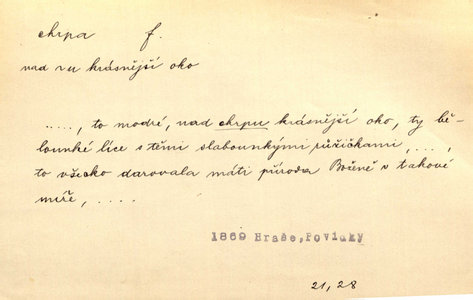 chrpa f.
nad ni krásnější oko
...., to modré, nad chrpu krásnější oko, ty bě-
lounké líce s těmi slabounkými růžičkami, ...,
to všecko darovala máti příroda Boženě v takové
míře, ....
1869 Hraše, Povídky
21, 28